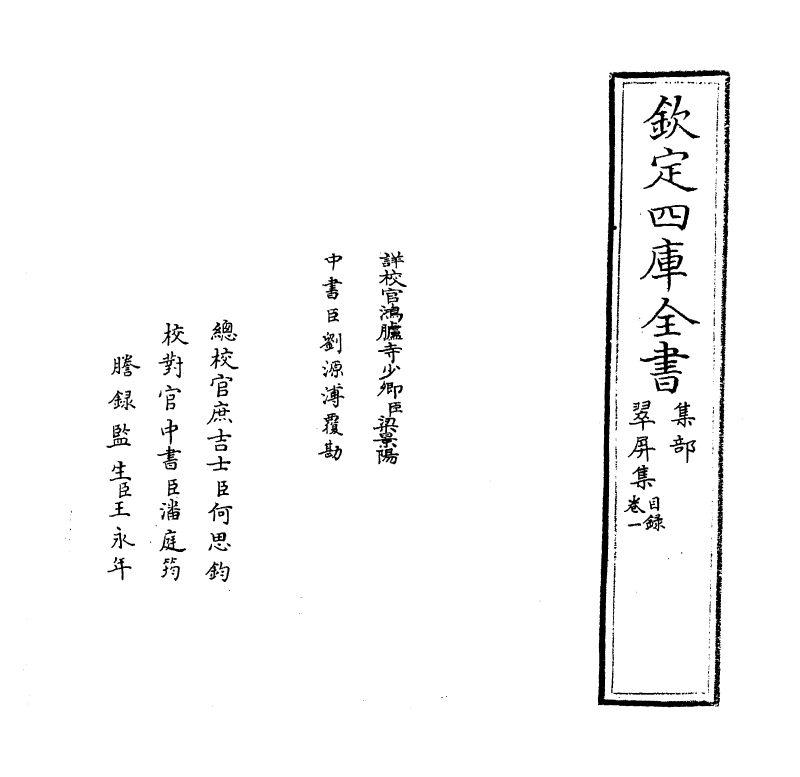 欽定四庫全書
集部
翠屏集
目録
卷一
詳校官鴻臚寺少卿臣梁景陽
中書臣劉源溥覆勘
總校官庶吉士臣何思鈞
校對官中書臣潘庭筠
謄録監生臣王永年